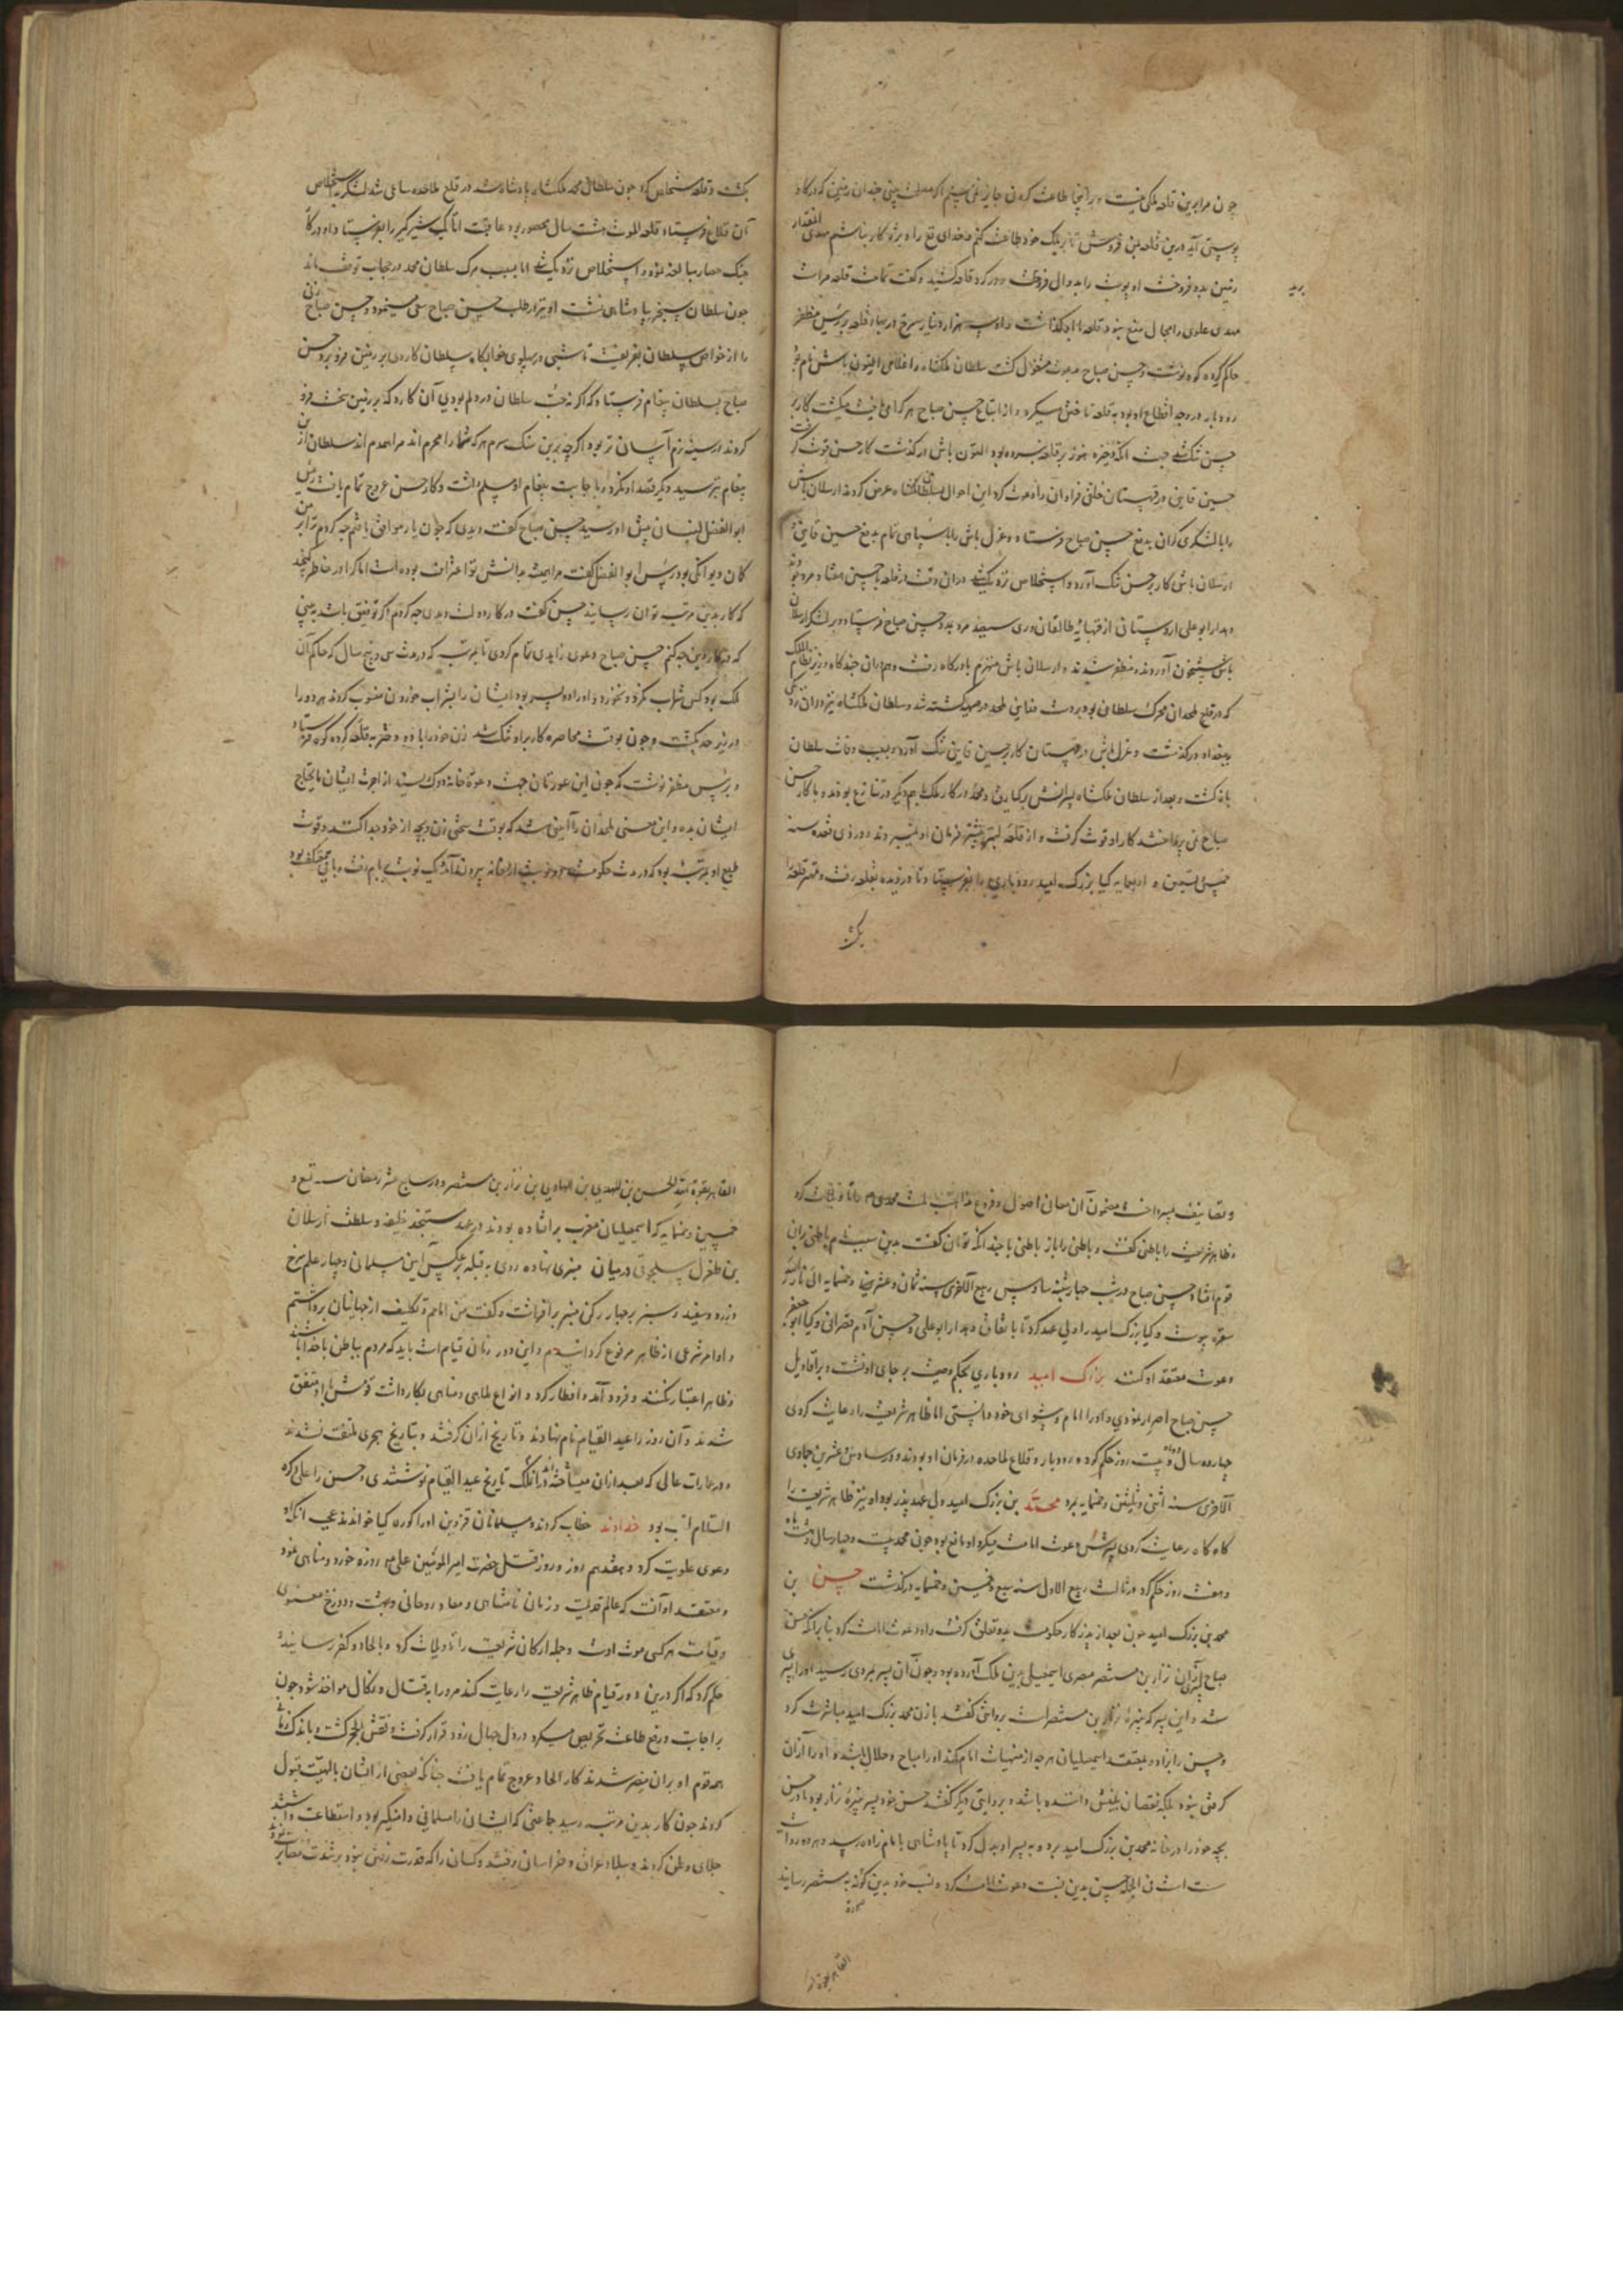 چون مرا برین قلعه ملکی نیست و برینجا طاعت کردن جایز نمی‌بینم اگر مصلحت بینی چندان زمین که در گاو
پوستی آید ازین قلعه بمن فروش تا بر ملک خود طاعت کنم و خدای تع را بزه کار نباشم مهدی آنمقدار
زمین بدو فروخت او پوست را بدوال فروکشید و در گرد قلعه کشید و گفت تمامت قلعه مراست
مهدی علوی را مجال منع نبود قلعه با او گذاشت و او سه هزار دینار سرخ از بهاء قلعه بر رئیس مظفر
حاکم گردکوه نوشت و حسن صباح بدعوت مشغول گشت سلطان ملکشاه را غلامی التون باش نام
رودبار در وجه اقطاع او بود به قلعه تاختن میکرد و از اتباع حسن صباح هر کرا می‌یافت میکشت کار بر
حسن تنک شد جهت آنکه ذخیره هنوز بر قلعه نبرده بود التون باش در گذشت کار حسن قوت گرفت
حسین قاینی در قهستان خلقی فراوان را دعوت کرد این احوال بسلطان ملکشاه عرض کردند ارسلان باش
را با لشکری گران بدفع حسن صباح فرستاد و غزل باش را با سپاهی تمام بدفع حسین قاینی
ارسلان باش کار بر حسن تنک آورد و استخلاص نزدیک شد در آن وقت در قلعه با حسن هفتاد مرد بودند
دهدار ابو علی اردستانی از قهپایه طالقان و ری سیصد مرد بمدد حسن صباح فرستاد و بر لشکر ارسلان
باش شبیخون آوردند و مظفر شدند و ارسلان باش منهزم با درگاه رفت و هم در آن چندگاه وزیر نظام الملک
که در قلع ملحدان محرک سلطان بود بر دست فدایی ملحد در صحنه کشته شد و سلطان ملکشاه نیز در آن نزدیکی
ببغداد در گذشت و غزل باش در قهستان کار بر حسین قاینی تنک آورد و بسبب وفات سلطان
باز گشت و بعد از سلطان ملکشاه پسرانش برکیارق و محمد در کار ملک با همدیگر در تنازع بودند و با کار حسن
صباح نمی پرداختند کار او قوت گرفت و از قلعه لنبسر بیشتر فرمان او نمیبردند در ذی قعده سنه
خمس و تسعین و اربعمایه کیا بزرک امید رودباری را بفرستاد تا دزدیده بقلعه رفت و مهتر قلعه را
بکشت
بکشت و قلعه مستخلص کرد چون سلطان محمد ملکشاه پادشاه شد در قلع ملاحده ساعی شد لشکر به استخلاص
آن قلاع فرستاد و قلعه الموت هشت سال محصور بود عاقبت اتابک شیر گیر را بفرستاد و او در کار
جنک حصار مبالغه نمود و استخلاص نزدیک شد اما بسبب مرک سلطان محمد در حجاب توقف ماند
چون سلطان سنجر بپادشاهی نشست او نیز در طلب حسن صباح سعی مینمود حسن صباح زنی
را از خواص سلطان بفریفت تا شبی در پهلوی خوابگاه سلطان کاردی بر زمین فرو برد حسن
صباح بسلطان پیغام فرستاد که اگر نه حب سلطان در دلم بودی آن کارد که بر زمین سخت فرو
کردند در سینه نرم آسان تر بود اگرچه برین سنک سرم هر که شما را محرم اند مرا همدم اند سلطان از این
پیغام بترسید و دیگر قصد او نکرد و با جابت پیغام او سلم داشت و کار حسن عروج تمام یافت رئیس
ابو الفضل لنبانی پیش او رسید حسن صباح گفت دیدی که چون یار موافق یافتم چه کردم ترا بر من
گمان دیوانگی بود رئیس ابو الفضل گفت مرا همیشه بدانش تو اعتراف بوده است اما کرا در خاطر گنجد
که کار بدین مرتبه توان رسانید حسن گفت در کار دولت دیدی چه کردم اگر توفیق باشد ببینی
که در کار دین چه کنم حسن صباح دعوی زاهدی تمام کردی تا بمرتبه که در مدت سی و پنج سال که حاکم آن
ملک بود کس شراب نکرد و نخورد و او را دو پسر بود ایشان را بشراب خوردن منسوب کردند هر دو را
در زیر حد بکشت و چون بوقت محاصره کار بر او تنک شد زن خود را با دو دختر به قلعه گرده کوه فرستاد
و برئیس مظفر نوشت که چون این عورتان جهت دعوة خانه دوک ریسند از اجرت ایشان ما یحتاج
ایشان بده و این معنی ملحدان را آیینی شد که بوقت سختی زن و بچه از خود جدا کنند و قوت
طبع او بمرتبه بود که در مدت حکومت دو نوبت از خانه بیرون آمد یک نوبت بر بام رفت و باقی معتکف بود
و تصانیف پرداخت مضمون آن معانی اصول و فروع مذاهب ملت محمدی م
و ظاهر شریعت را باطنی گفت و باطن را باز باطنی تا چندانکه توان گفت بدین سبب نام باطنی بر آن
قوم افتاد حسن صباح در شب چهارشنبه سادس ربیع الآخر سنه ثمان و عشر و خمسمایه الی نار الله و
سقره پیوست و کیا بزرک امید را ولی عهد کرد تا باتفاق دهدار ابو علی و حسن آدم قصرانی و کیا ابو جعفر
دعوت معتقد او کنند بزرک امید رودباری بحکم وصیت بر جای او نشست و بر اقاویل
حسن صباح اصرار نمودی و او را امام و پیشوای خود دانستی اما ظاهر شریعت را رعایت کردی
چهارده سال و دو ماه و بیست روز حکم کرد و رودبار و قلاع ملاحده در فرمان او بودند و در سادس عشرین جمادی
الآخری سنه اثنی و ثلثین و خمسمایه بمرد محمد بن بزرک امید ولی عهد پدر بود او نیز ظاهر شریعت را
گاه گاه رعایت کردی پسرش دعوت امامت میکرد او مانع بود چون محمد بیست و چهار سال و هشت ماه
و هفت روز حکم کرد در ثالث ربیع الاول سنه سبع و خمسین و خمسمایه در گذشت حسن بن
محمد بن بزرک امید چون بعد از پدر کار حکومت بدو تعلق گرفت و او دعوت امامت کرد بنا بر آنکه حسن
صباح پسری از آن نزار بن مستنصر مصری اسمعیلی بدین ملک آورده بود و چون آن پسر بمردی رسید او را پسری
شد و این پسر که نبیرهٔ نزار بن مستنصر است بروایتی گفتند با زن محمد بزرک امید مباشرت کرد
و حسن را بزاد و بمعتقد اسمعیلیان هرچه از منهیات امام کند او را مباح و حلال باشد و او را از آن
گرفتی نبود بلکه نقصان بنفس داننده باشد و بروایتی دیگر گفتند حسن خود پسر نبیرهٔ نزار بود مادر حسن
بچه خود را در خانه محمد بن بزرک امید برد و به پسر او بدل کرد تا پادشاهی با امام زاده رسید و هر دو روایت
سست است فی الجمله حسن بدین نسبت دعوت امامت کرد و نسب خود بدین گونه به مستنصر رسانید
القاهر بقوة الله
القاهر بقوة الله الحسن بن المهدی بن الهادی بن نزار بن مستنصر و در سابع عشر رمضان سنه تسع و
خمسین و خمسمایه که اسمعیلیان مغرب بر افتاده بودند در عهد مستنجد خلیفه و سلطنت ارسلان
بن طغرل سلجوقی در میان منبری نهاده روی به قبله بر عکس آیین مسلمانی و چهار علم سرخ
و زرد و سفید و سبز بر چهار رکن منبر برافراشت و گفت من امامم و تکلیف از جهانیان برداشتم
و اوامر شرعی از ظاهر مرفوع گردانیدم و این دور زمان قیامست باید که مردم بباطن با خدا باشند
و ظاهر اعتبار نکنند و فرود آمد و افطار کرد و انواع ملاهی و مناهی بکار داشت قومش با او متفق
شدند و آن روز را عید القیام نام نهادند و تاریخ از آن گرفتند و بتاریخ هجری ملتفت نشدند
و در عمارات عالی که بعد از آن میساختند در آن ملک تاریخ عید القیام نوشتندی و حسن را علی ذکره
السلام لقب بود خداوند خطاب کردند و مسلمانان قزوین او را کوره کیا خواندند عجب آنکه او
دعوی علویت کرد و هفدهم روز و روز قتل حضرت امیر المومنین علی م روزه خورد و مناهی نمود
و معتقد او آنست که عالم قدیمست و زمان نامتناهی و معاد روحانی و بهشت و دوزخ معنوی
و قیامت هر کسی موت اوست و جمله ارکان شریعت را تاویلات کرد و بالحاد و کفر رسانید
حکم کرد که اگر درین دور قیام ظاهر شریعت را رعایت کند مرو را بقتال و نکال مواخذ شود چون
بر اجابت و رفع طاعت تحریص میکرد در دل جهال زود قرار گرفت و نقش الحجر گشت و باندک زمانی
همه قوم او بر آن مصر شدند کار الحاد عروج تمام یافت چنانکه بعضی از ایشان بالهیت قبول
کردند چون کار بدین مرتبه رسید جماعتی که ایشان را مسلمانی دامنگیر بود و استطاعت داشتند
جلای وطن کردند و ببلاد عراق و خراسان رفتند و کسان را که قدرت رفتن نبود بر شدت مصابرت نمودند